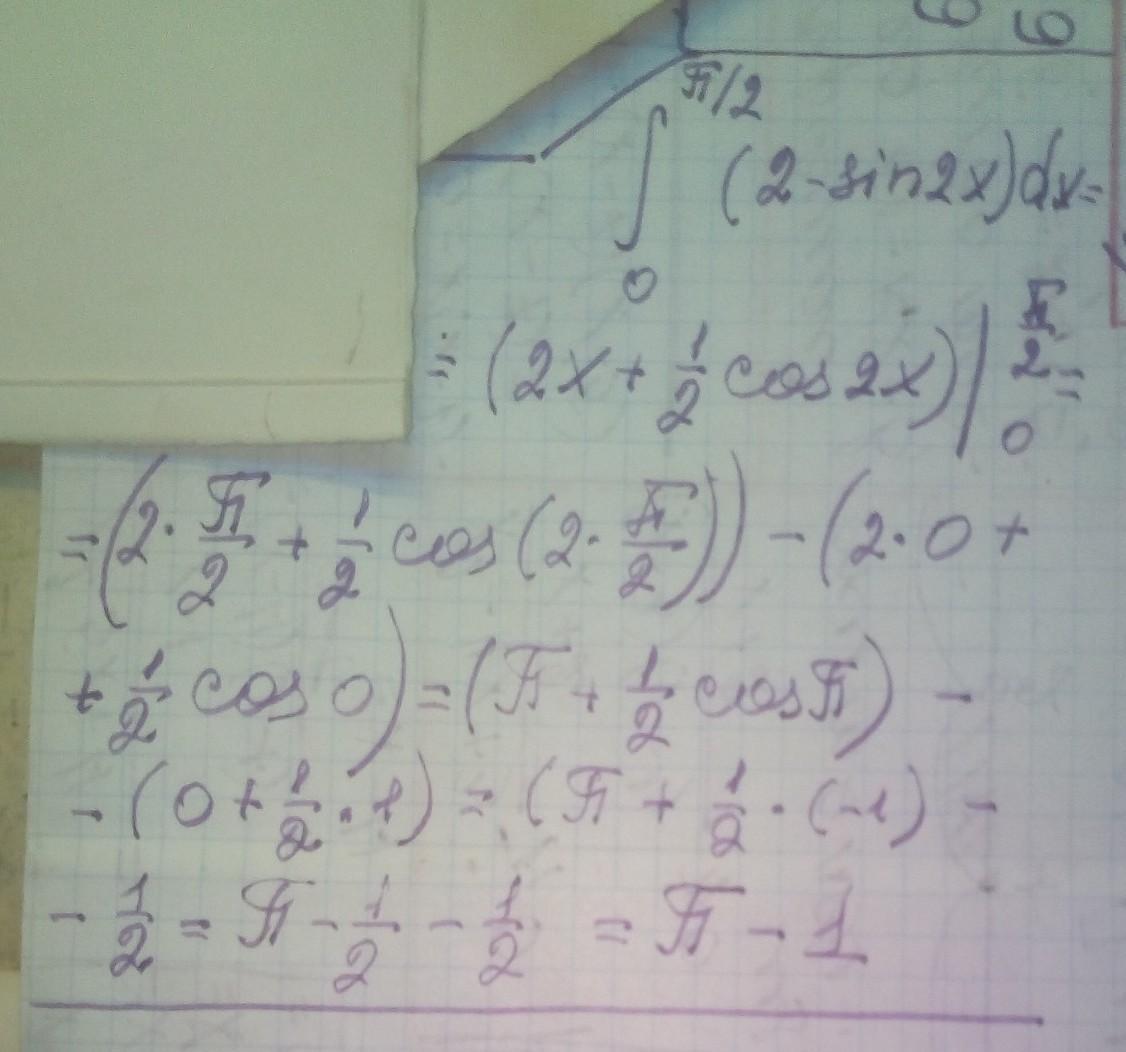 6 6
∫₀^{π/2} (2-sin2x)dx=
= (2x + 1/2 cos 2x) |₀^{π/2} =
= (2 · π/2 + 1/2 cos (2 · π/2)) - (2 · 0 +
+ 1/2 cos 0) = (π + 1/2 cos π) -
- (0 + 1/2 · 1) = (π + 1/2 · (-1) -
- 1/2 = π - 1/2 - 1/2 = π - 1